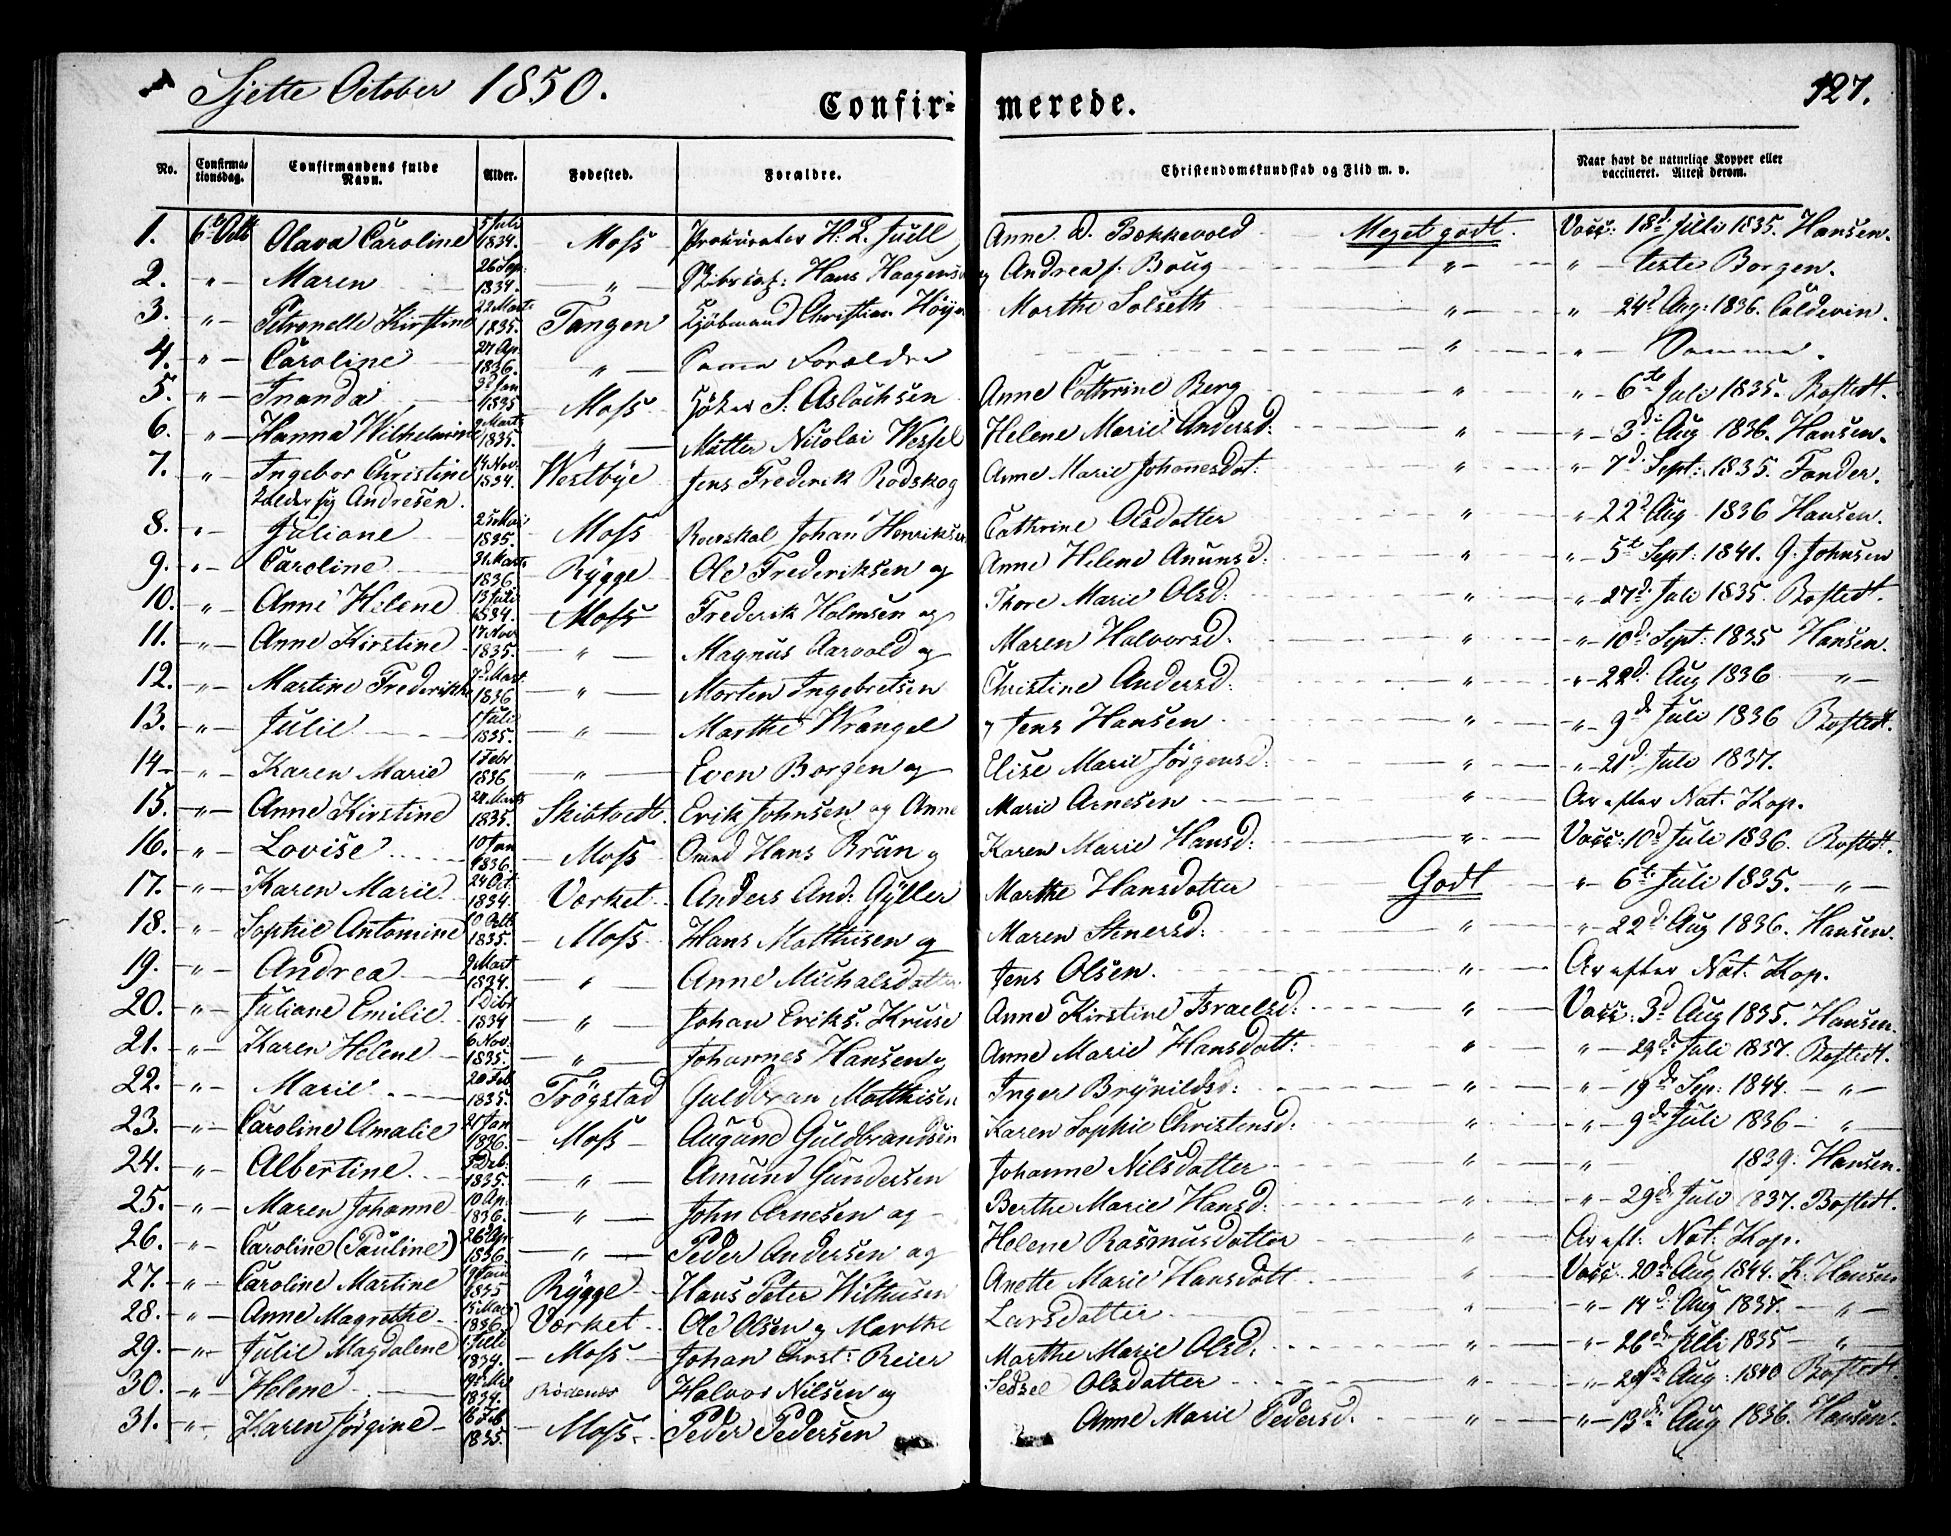 Sjette October 1850.
Confir= merede.
127.
No. Confirmationsdag. Confirmandens fulde Navn. Alder. Fødested. Forældre. Christendomskundskab og Flid m. v. Naar havt de naturlige Kopper eller vaccineret. Attest derom.
1. 6te Octb Olava Caroline 5 Juli 1834. Moss Procurator H. L. Juell Anne D. Bækkevold Meget godt. Vacc: 18d Juli 1835. Hansen.
2. " Maren 26 Sep: 1834. " Hans Haagens og Andrea f. Boug " " teste Borgen.
3. " Petronelle Kirstine 22 Mart 1835. Tangen Kjøbmand Christian Höyer Marthe Solseth " " 24d Aug: 1836. Coldevin.
4. " Caroline 27 Ap. 1836. " Samme Forældre " " Samme.
5. " Inanda 3d Jan 1835 Moss S. Aslachsen Anne Cathrine Berg " " 6te Juli 1835. Bostedt.
6. " Hanna Wilhelmine 9 Marts 1835. " Nicolai Wessel Helene Marie Andersd: " " 3d Aug 1836. Hansen.
7. " Ingebor Christine 14 Nov. 1834. Westbye Jens Frederik Rødskog Anne Marie Johannesdat: " " 7d Sept: 1835. Tønder.
Andresen.
8. " Juliane 25 Mai 1835. Moss Johan Henriksen Cathrine Olsdatter " " 22d Aug 1836 Hansen.
9. " Caroline 31 Marts 1836 Rygge Ole Frederiksen og Anne Helene Anunsd: " " 5te Sept. 1841. G. Johnsen
10. " Anne Helene 13 Juli 1834. Moss Frederik Holmsen og Thore Marie Olsd: " " 27d Juli 1835. Bostedt.
11. " Anne Kirstine 17 Nov 1835. " Magnus Aarvold og Maren Halvorsd. " " 10d Sept: 1835 Hansen.
12. " Martine Frederikke 7d Mart 1836 " Morten Ingebretsen Christine Andersd: " " 22d Aug 1836 "
13. " Julie 1 Juli 1835. " Marthe Wrangel og Jens Hansen " " 9d Juli 1836 Bostedt.
14 " Karen Marie 1 Febr 1836 " Even Borgen og Elise Marie Jørgensd: " " 21d Juli 1837.
15. " Anne Kirstine 24 Marts 1835. Skibtvedt. Erik Johnsen og Anne Marie Arnesen " Ar efter Nat. Kop.
16. " Lovise 10 Jan 1836. Moss Hans Brun og Karen Marie Hansd: " Vacc: 10d Juli 1836. Bostedt.
17. " Karen Marie 24 Oct. 1834. Værket Anders And: Gyller Marthe Hansdatter Godt " 6te Juli 1835. "
18. " Sophie Antomine 10 Octb 1835. Moss Hans Matthisen og Maren Stenersd. " " 22d Aug 1836. Hansen.
19. " Andrea 9 Mart 1834. " Anne Michalsdatter Jens Olsen. " Ar efter Nat. Kop.
20. " Juliane Emilie 1 Dcbr 1834 " Johan Eriks. Kruse Anne Kirstine Israelsd: " Vacc: 3d Aug 1835. Hansen.
21. " Karen Helene 6 Nov. 1835. " Johannes Hansen og Anne Marie Hansdatt: " " 29d Juli 1837. Bostedt.
22. " Marie 20 Feb 1835. Trögstad Guldbran Matthisen Inger Brynildsd: " " 19de Sep: 1844. "
23. " Caroline Amalie 21 Jan 1836. Moss Augund Guldbrandsen Karen Sophie Christensd: " " 9de Juli 1836 "
24. " Albertine 1835. " Amund Gundersen Johanne Nilsdatter " " 1839. Hansen.
25. " Maren Johanne 10 Ap: 1836. " John Arnesen og Berthe Marie Hansd: " " 29de Juli 1837. Bostedt.
26. " Caroline (Pauline) 26 Apr 1836 " Peder Andersen og Helene Rasmusdatter " Ar eft. Nat. Kop.
27. " Caroline Martine 1835 Rygge Hans Peter Withusen Anette Marie Hansdatt " Vacc: 20de Aug 1844. K. Hansen
28. " Anne Magrethe 15 Mai 1836 Værket Ole Olsen og Marthe Larsdatter " " 14d Aug 1837. "
29. " Julie Magdalene 1 Juli 1834. Moss Johan Chrst: Reier Marthe Marie Olsd: " " 26de Juli 1835 "
30. " Helene 1834. Rødenæs Halvor Nilsen og Sedsel Olsdatter " " 29de Aug: 1840 Bostedt.
31. " Karen Jørgine 16 Feb 1835. Moss. Peder Pedersen Anne Marie Pedersd. " " 13de Aug 1836. Hansen.